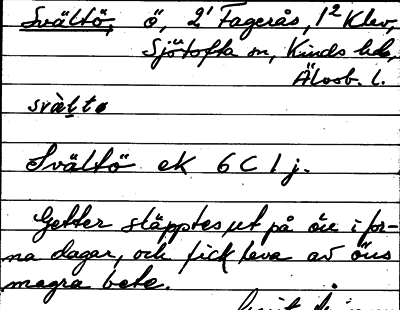 Svältö, ö, 2' Fagerås, 1² Klev,
Sjötofta sn, Kinds hd,
Älvsb. l.
svàltø
Svältö ek 6 C 1 j.
Getter släpptes ut på ön i for-
na dagar, och fick leva av öns
magra bete.